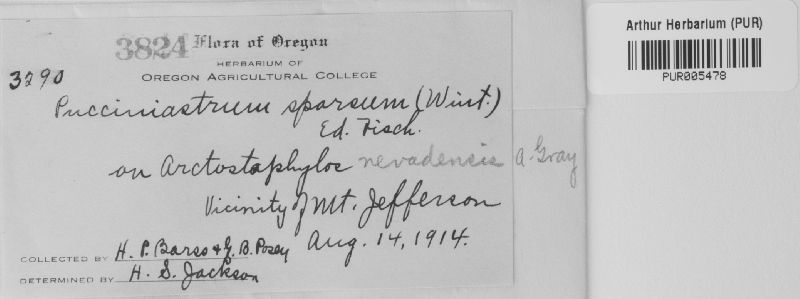 3824 Flora of Oregon
HERBARIUM OF
3290
OREGON AGRICULTURAL COLLEGE
Pucciniastrum sparsum (Wint.)
Ed. Fisch.
on Arctostaphylos nevadensis A. Gray
Vicinity of Mt. Jefferson
Aug. 14, 1914.
COLLECTED BY H. P. Barss & G. B. Posey
DETERMINED BY H. S. Jackson
Arthur Herbarium (PUR)
PUR005478